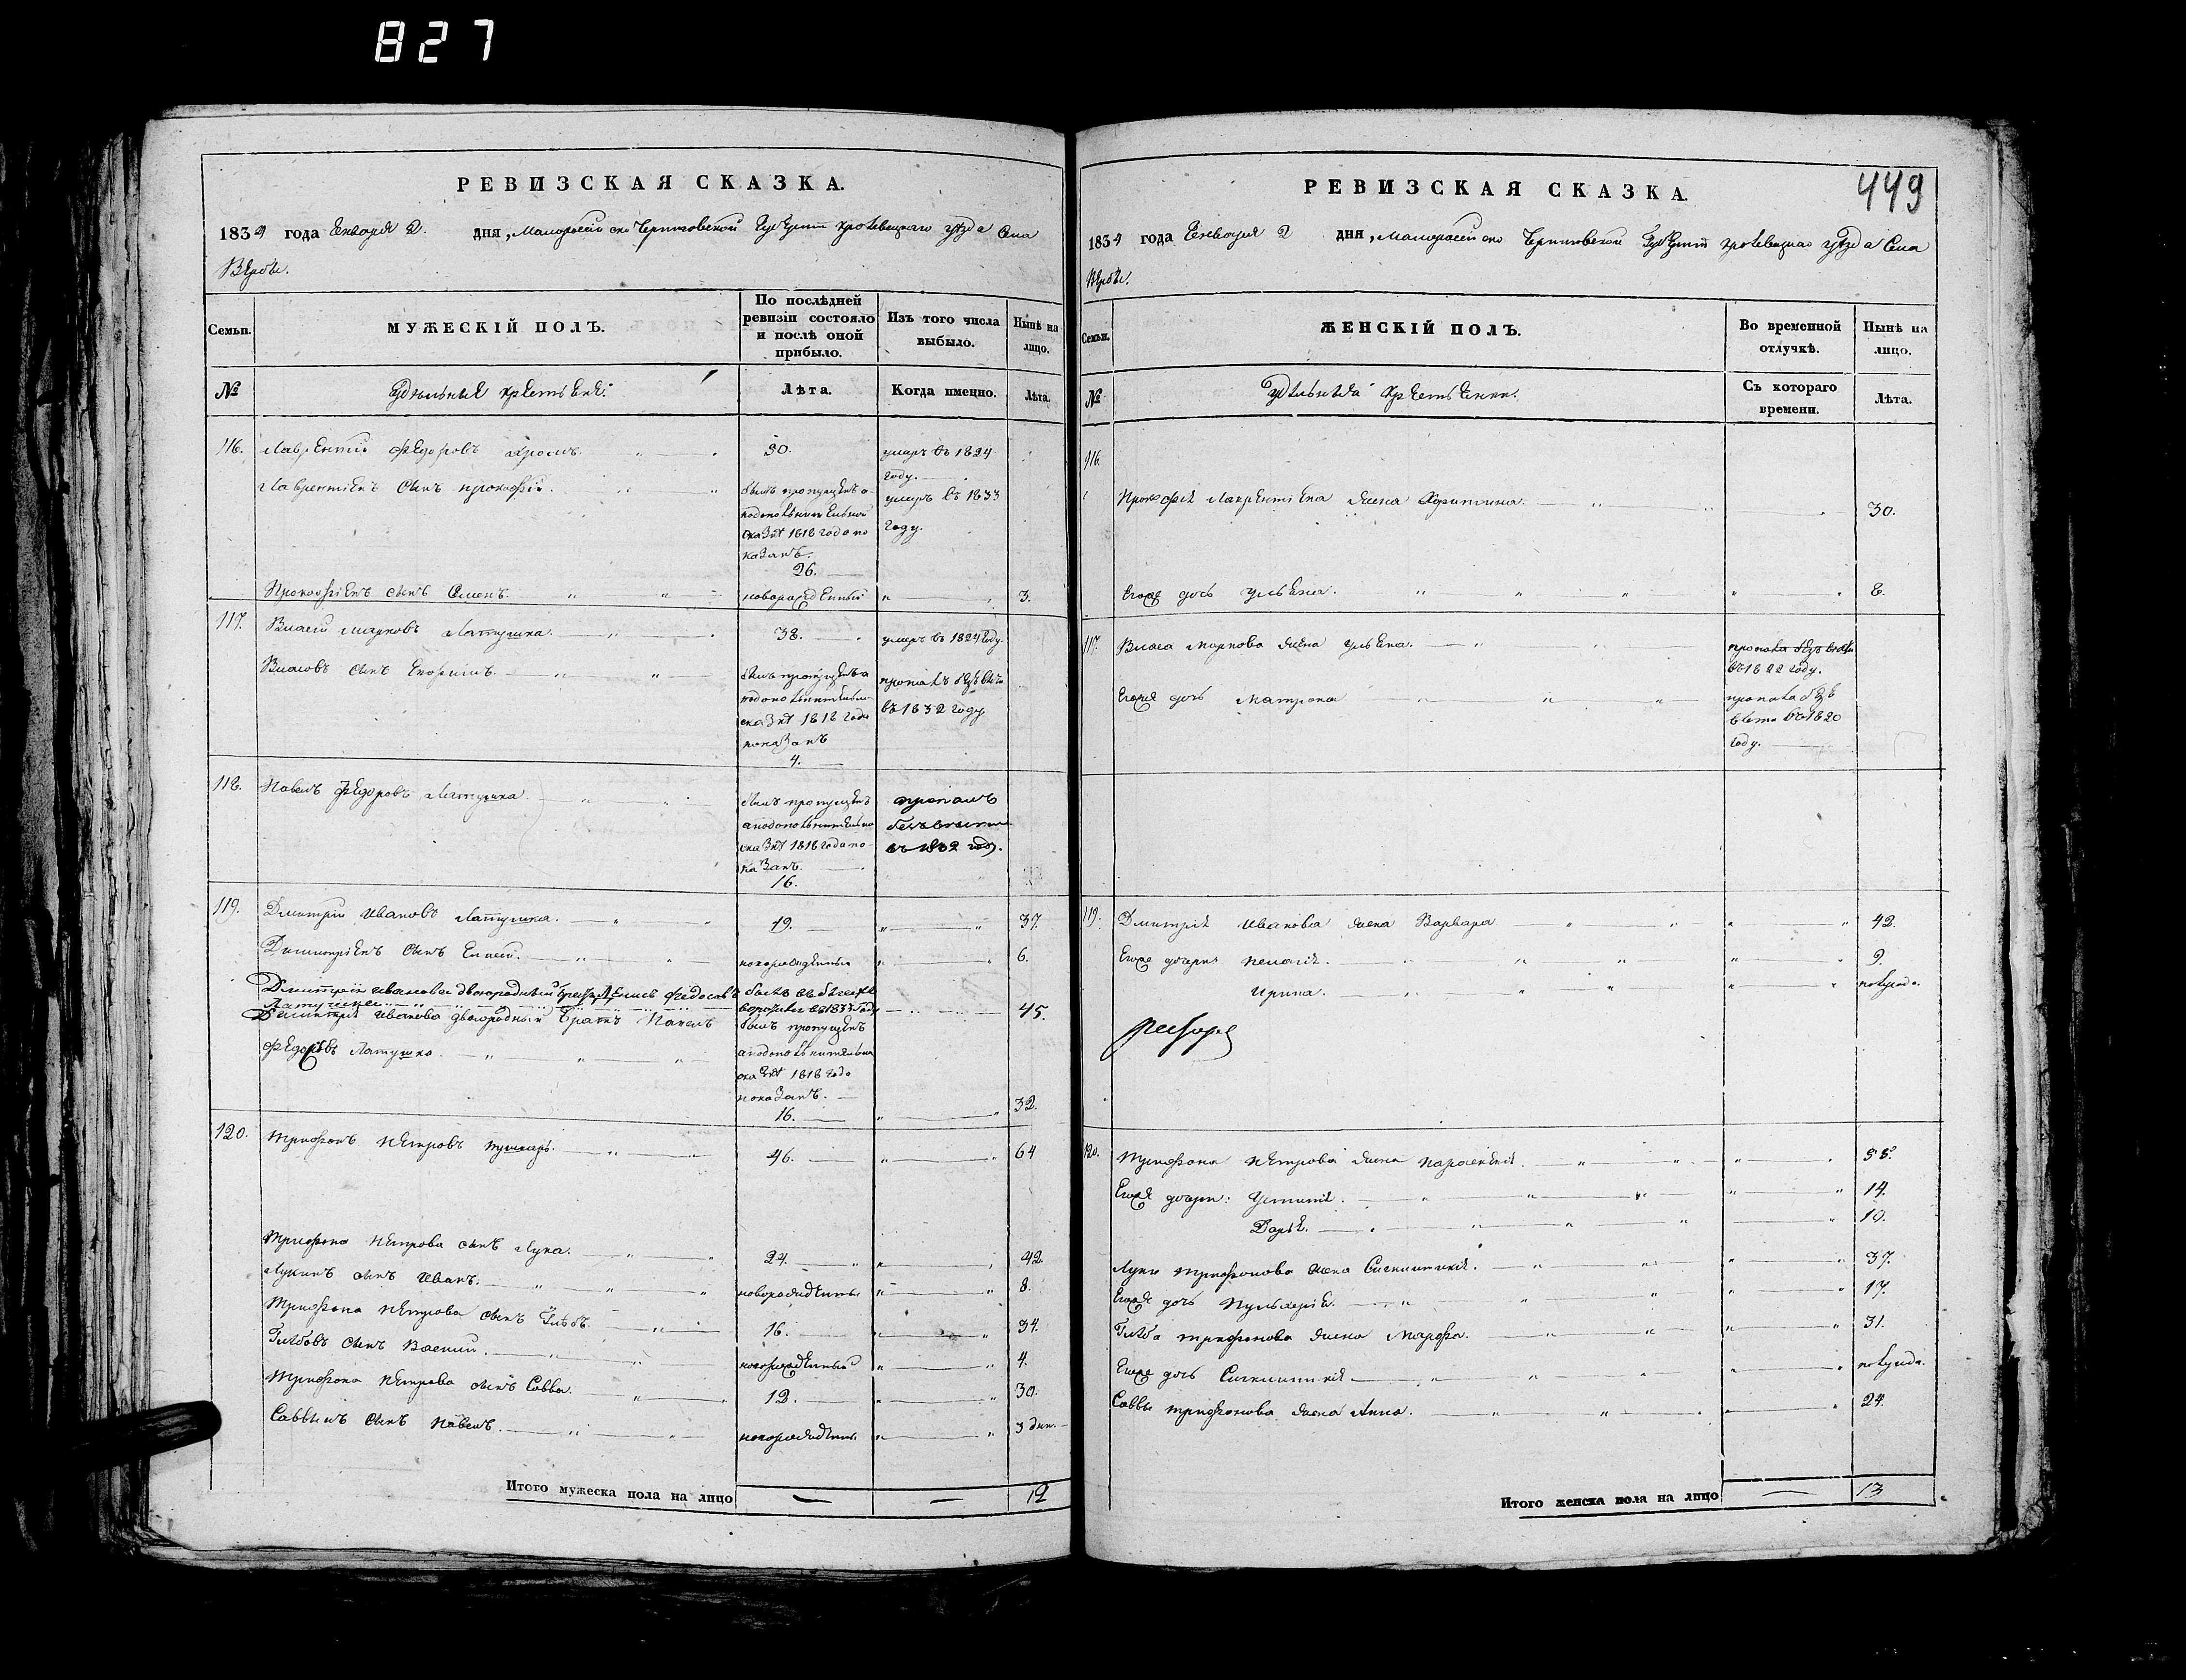 827
РЕВИЗСКАЯ СКАЗКА.
1834 года Генваря 2. дня, Малоросійско Черниговской Губерніи Кролевецкаго уезда Села
Вербы.
Семьи.
МУЖЕСКІЙ ПОЛЪ.
По послѣдней ревизіи состояло и послѣ оной прибыло.
Изъ того числа выбыло.
Нынѣ на лицо.
№
Удельные крестьяне.
Лѣта.
Когда именно.
Лѣта.
116. Лаврентій Федоровъ 30. умеръ въ 1824 году.
Лаврентіевъ сынъ Прокофій. былъ пропущенъ а по дополнительной сказке 1818 года показанъ. 26. умеръ въ 1833 году.
Прокофіевъ сынъ Семенъ. новорожденный 3.
117. Власій Марковъ Латушка. 38. умеръ въ 1824 году.
Власовъ сынъ Ефримъ. былъ пропущенъ а по дополнительно сказке 1818 года показанъ 4. пропалъ безъ вести въ 1832 году
118. Павелъ Федоровъ Латушка былъ пропущенъ а по дополнительной сказке 1818 года показанъ. 16. пропалъ безъ вести въ 1832 году.
119. Дмитрій Ивановъ Латушка. 19. 37.
Дмитріевъ сынъ Елисей. новорожденный 6.
Дмитрія Иванова двоюродный братъ Денисъ Федосовъ былъ въ бегахъ
Латушка воротився въ 1833 году 45.
Дмитрія Иванова двоюродный братъ Павелъ
Федоровъ Латушко былъ пропущенъ а по дополнительной сказке 1818 года показанъ. 16. 32.
120. Трифонъ Петровъ Пушкарь. 46. 64
Трифона Петрова сынъ Лука. 24. 42.
Лукинъ сынъ Иванъ. новорожденный 8.
Трифона Петрова сынъ Глѣбъ 16. 34.
Глѣбовъ сынъ Василій. новорожденный 4.
Трифона Петрова сынъ Савва. 12. 30.
Саввинъ сынъ Павелъ. новорожденный 3 дни.
Итого мужеска пола на лицо 12
449
РЕВИЗСКАЯ СКАЗКА.
1834 года Генваря 2 дня, Малоросійско Черниговской Губерніи Кролевецкаго уезда Села
Вербы.
Семьи.
ЖЕНСКІЙ ПОЛЪ.
Во временной отлучкѣ.
Нынѣ на лицо.
№
Удельныя крестьянки.
Съ котораго времени.
Лѣта.
116.
Прокофія Лаврентіева жена Харитина. 30.
Егоже дочь Ульяна. 8.
117. Власа Маркова жена Ульяна. пропала безъ вести въ 1822 году.
Егоже дочь Матрона пропала безъ вести въ 1820 году.
119. Дмитрія Иванова жена Варвара 42.
Егоже дочери Пелагія. 9.
Ирина. полугода.
120. Трифона Петрова жена Параскевія. 55.
Егоже дочери: Устинія. 14.
Дарія. 10.
Луки Трифонова жена Сиклитикія. 37.
Егоже дочь Пульхерія. 17.
Глѣба Трифонова жена Марфа. 31.
Егоже дочь Сиклитикія полугода.
Саввы Трифонова жена Анна. 24.
Итого женска пола на лицо 13